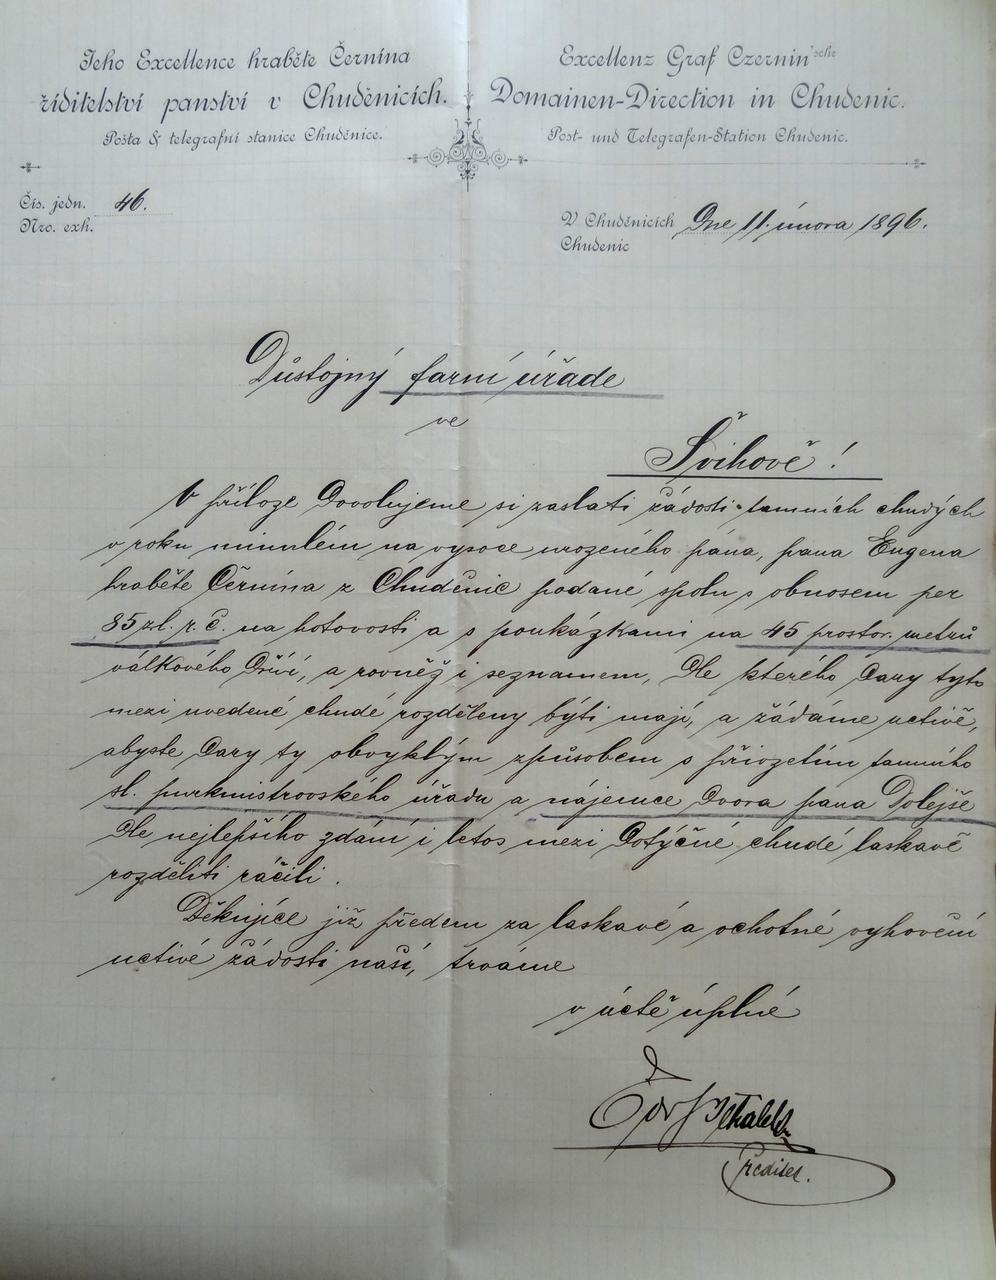 Jeho Excellence hraběte Černína
řiditelství panství v Chuděnicích.
Pošta & telegrafní stanice Chuděnice.
Excellenz Graf Czernin'sche
Domainen-Direction in Chudenic.
Post- und Telegrafen-Station Chudenic.
Čís. jedn. 46.
Nro. exh.
V Chuděnicích Dne 11. února 1896.
Chudenic
Důstojný farní úřade
ve
Švihově!
V příloze dovolujeme si zaslati žádosti tamních chudých
v roku minulém na vysoce urozeného pána, pana Eugena
hraběte Černína z Chuděnic podané spolu s obnosem per
85 zl. r. č. na hotovosti a s poukázkami na 45 prostor. metrů
válkového dříví, a rovněž i seznamem, dle kterého dary tyto
mezi uvedené chudé rozděleny býti mají, a žádáme uctivě,
abyste dary ty obvyklým způsobem s přivzetím tamního
sl. purkmistrovského úřadu a nájemce dvora pana Dolejše
dle nejlepšího zdání i letos mezi dotýčné chudé laskavě
rozděliti ráčili.
Děkujíce již předem za laskavé a ochotné vyhovění
uctivé žádosti naší, trváme
v úctě úplné
ředitel.